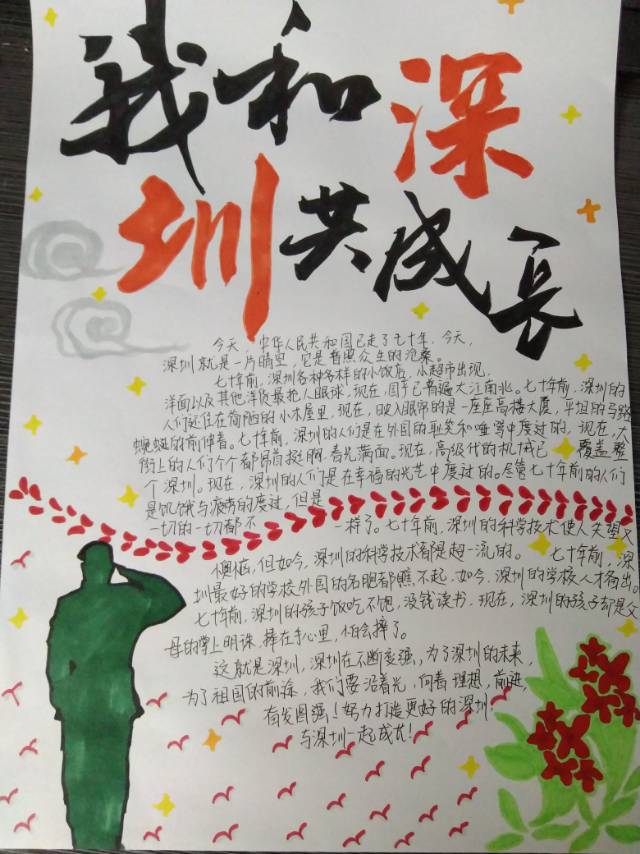 我和深
圳共成长
今天，中华人民共和国已走了七十年，今天，
深圳就是一片晴空，它是普照众生的沧桑。
七十年前，深圳各种多样的小饭店，小超市出现，
洋面以及其他洋货最抢人眼球，现在，国手已普遍大江南北。七十年前，深圳的
人们还住在简陋的小木屋里，现在，映入眼帘的是一座座高楼大厦，平坦的马路
蜿蜒的前伸着。七十年前，深圳的人们是在外国的耻笑和唾骂中度过的，现在，大
街上的人们个个都昂首挺胸，春光满面。现在，高级代的机械已覆盖整
个深圳。现在，深圳的人们是在幸福的光芒中度过的。尽管七十年前的人们
是饥饿与疲劳的度过，但是
一切的一切都不一样了。七十年前，深圳的科学技术使人失望又
懊恼，但如今，深圳的科学技术都是超一流的。七十年前，深
圳最好的学校外国的名眼都瞧不起，如今，深圳的学校人才备出。
七十年前，深圳的孩子饭吃不饱，没钱读书，现在，深圳的孩子都是父
母的掌上明珠，捧在手心里，怕会摔了。
这就是深圳，深圳在不断变强，为了深圳的未来，
为了祖国的前途，我们要沿着光，向着理想，前进，
有发图强！努力打造更好的深圳
与深圳一起成长！